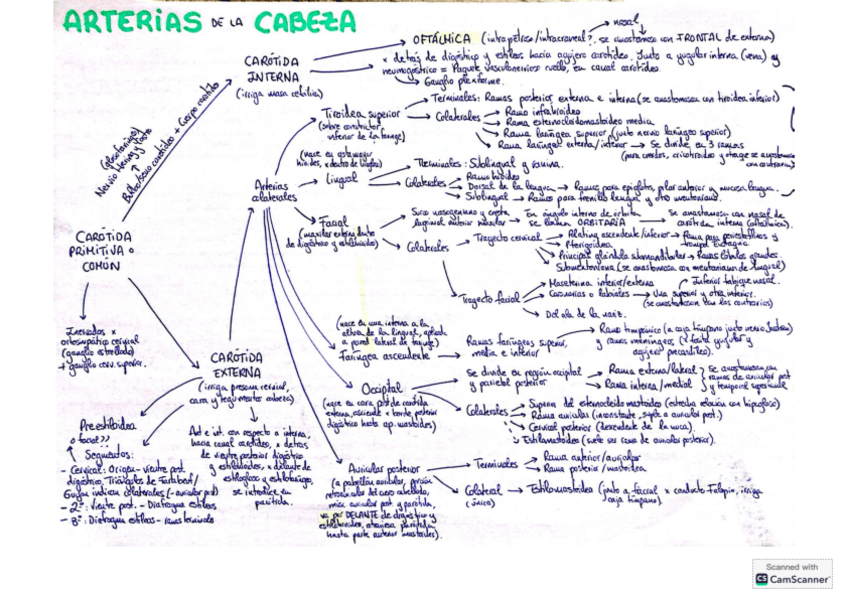 ARTERIAS DE LA CABEZA
CARÓTIDA
PRIMITIVA o
COMÚN
Inervados x
ortosimpático cervical
(ganglio estrellado)
+ ganglio cerv. superior.
Nervio Hering y Vago
Bulbo/seno carotídeo + Cuerpo carotídeo
CARÓTIDA
INTERNA
(irriga masa cefálica)
OFTÁLMICA (intrapétrea/intracraneal?, se anastomosa con FRONTAL de externa)
nasal
x detrás de digástrico y estilos hacia agujero carotídeo. Junto a yugular interna (vena) y
neumogástrico = Paquete vasculonervioso cuello, en canal carotídeo.
Ganglio plexiforme.
CARÓTIDA
EXTERNA
(irriga presona cervical,
cara y tegumentos cabeza)
Preestiloidea
o facial??
Segmentos:
- Cervical: Origen - vientre post.
digástrico. Triángulos de Farabeuf/
Guyon indican colaterales (- auricular post)
- 2º: Vientre post. - Diafragma estileo
- 3º: Diafragma estileo - ramas terminales
Ant e int. con respecto a interna,
hacia canal carotídeo, x detrás
de vientre posterior digástrico
y estilohioideo, x delante de
estilogloso y estilofaríngeo,
se introduce en
parótida.
Arterias
colaterales
Tiroidea superior
(sobre constrictor
inferior de la faringe)
Terminales: Ramas posterior, externa e interna (se anastomosa con tiroidea inferior)
Colaterales
Ramo infrahioideo
Rama esternocleidomastoidea media
Rama laríngea superior (junto nervio laríngeo superior)
Rama laríngea externa/inferior → Se divide en 3 ramas
Lingual
Terminales: Sublingual y ranina.
Colaterales
Ramo hioideo
Dorsal de la lengua → Ramos para epiglotis, pilar anterior y mucosa lengua.
Sublingual → Ramos para frenillo lengua y otro mentoniano.
Facial
(maxilar externa, dentro
de digástrico y estilohioideo)
Surco nasogeniano y
En ángulo interno de órbita
se llama ORBITARIA
Se anastomosa con nasal de
carótida interna (oftálmica).
Colaterales
Trayecto cervical
Palatina ascendente/inferior → Rama para periestafilinos y
trompa Eustaquio.
Pterigoidea
Principal glándula submandibular → Ramas lóbulos grandes.
Submentoniana (se anastomosa con mentoniano de lingual)
Trayecto facial
Maseterina inferior/externa
Inferior tabique nasal.
Coronarias o labiales → Una superior y otra inferior.
(se anastomosan con las contrarias)
Del ala de la nariz.
(nace en cara interna a la
altura de la lingual, aplicada
a pared lateral de faringe)
Faríngea ascendente
Ramas faríngeas superior,
media e inferior
Ramo timpánico (a caja tímpano
y ramos meníngeos
Occipital
(nace en cara post. de carótida
externa, asciende x borde posterior
digástrico hasta ap. mastoides)
Se divide en región occipital
y parietal posterior
Rama externa/lateral
Rama interna/medial
se anastomosan con
ramas de auricular post
y temporal superficial
Colaterales
Superior del esternocleidomastoideo (estrecha relación con hipogloso)
Rama auricular (inconstante, suple a auricular post.)
Cervical posterior (descendente de la nuca).
Estilomastoidea (suele ser rama de auricular posterior).
Auricular posterior
(a pabellón auricular, porción
retroauricular del cuero cabelludo,
músc. auricular post. y parótida,
va por DELANTE de digástrico y
estilohioideo, atraviesa parótida
hasta parte anterior mastoides).
Terminales
Rama anterior/auricular
Rama posterior/mastoidea
Colateral
(única)
Estilomastoidea (junto a facial x conducto Falopio, irriga
caja tímpano).
Scanned with
CS CamScanner